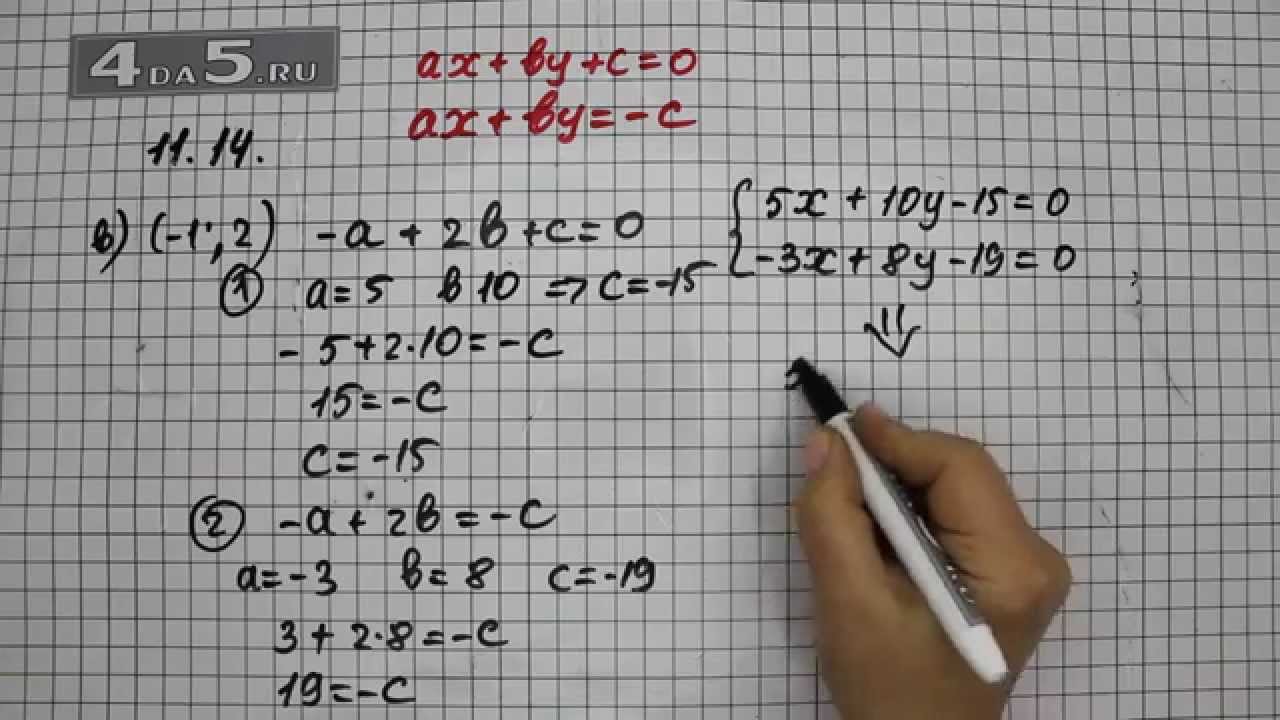 4DA5.RU
ax+вy+c=0
ax+вy=-c
11.14.
в) (-1; 2) -a+2в+c=0
① a=5 в 10 => c=-15
-5+2·10=-c
15=-c
c=-15
② -a+2в=-c
a=-3 в=8 c=-19
3+2·8=-c
19=-c
{5x+10y-15=0
-3x+8y-19=0 ;
⇓